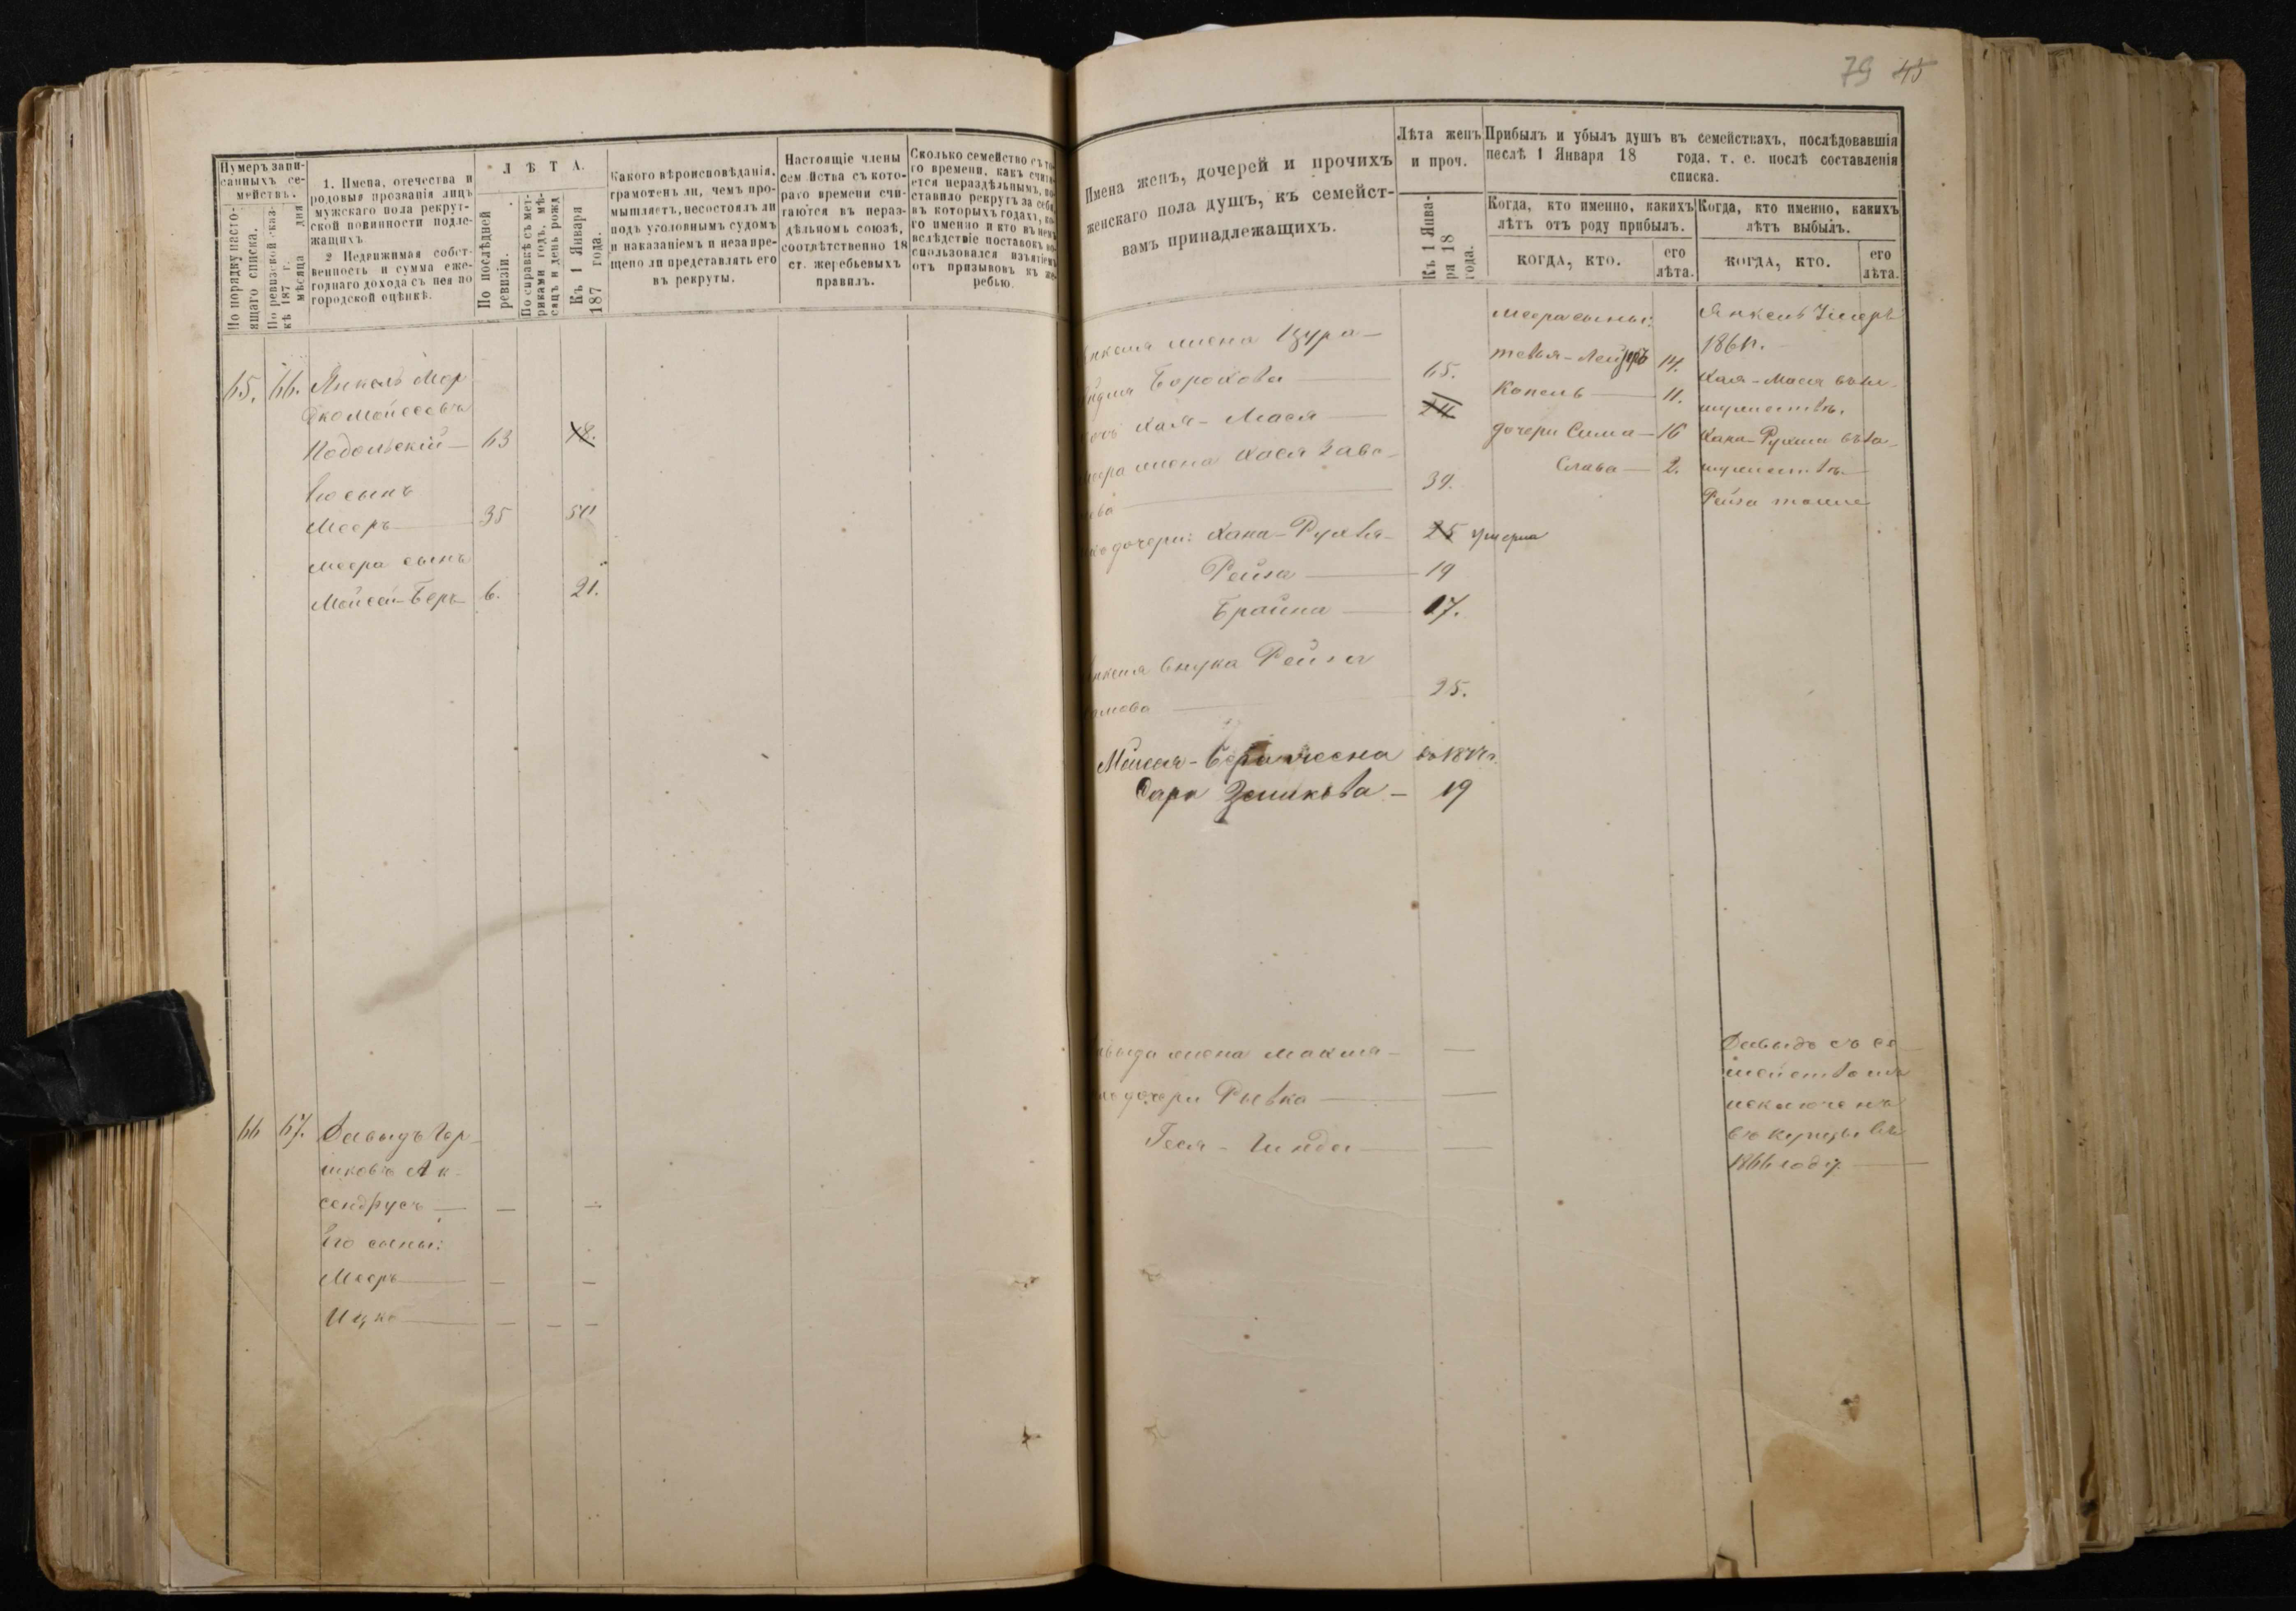 79 45
Нумеръ записанныхъ семействъ.
По порядку настоящаго списка.
По ревизской сказкѣ 187 г. мѣсяца дня
1. Имена, отечества и
родовыя прозванія лицъ
мужскаго пола рекрут-
ской повинности подле-
жащихъ
2 Недвижимая собст-
венность и сумма еже-
годнаго дохода съ нея по
городской оцѣнкѣ.
ЛѢТА.
По послѣдней ревизіи.
По справкѣ съ мет-
риками годъ, мѣ-
сяцъ и день рожд
Къ 1 Января 187 года.
Какого вѣроисповѣданія,
грамотенъ ли, чемъ про-
мышляетъ, несостоялъ ли
подъ уголовнымъ судомъ
и наказаніемъ и незапре-
щено ли представлять его
въ рекруты.
Настоящіе члены
семейства съ кото-
раго времени счи-
таются въ нераз-
дѣльномъ союзѣ,
соотвѣтственно 18
ст. жеребьевыхъ
правилъ.
Сколько семейство съ то-
го времени, какъ счита-
ется нераздѣльнымъ, по-
ставило рекрутъ за себя,
въ которыхъ годахъ, ко-
го именно и кто въ немъ
вслѣдствіе поставокъ во-
спользовался изъятіемъ
отъ призывовъ къ же-
ребью.
65. 66. Янкель Мор
дкомойсеевъ
Подольскій — 63 78.
Его сынъ
Мееръ — 35 50
Меера сынъ
Мойсей-Беръ 6. 21.
66 67. Давыдъ Гер-
шковъ Ак-
сендрусъ — — —
Его сыны:
Мееръ — — —
Ицко — — — —
Имена женъ, дочерей и прочихъ
женскаго пола душъ, къ семейст-
вамъ принадлежащихъ.
Лѣта женъ
и проч.
Къ 1 Янва-
ря 18
года.
Прибылъ и убылъ душъ въ семействахъ, послѣдовавшія
песлѣ 1 Января 18 года, т. е. послѣ составленія
списка.
Когда, кто именно, какихъ
лѣтъ отъ роду прибылъ.
КОГДА, КТО.
его
лѣта.
Когда, кто именно, какихъ
лѣтъ выбылъ.
КОГДА, КТО.
его
лѣта.
нкеля жена Цура —
Борохова — 65.
Хая-Мася — 24
еера жена Хася Заве-
39.
дочери: Хана-Рухля — 25 умерла
Рейза — 19
Брайна — 17.
нкеля внука Рейза
25.
Мойсея-Бера жена въ 1877 г.
Сара Зеликова — 19
выда жена Махля — —
дочери Рывка — —
Геся-Гинда — —
Меера сыны:
Тевья-Лейзеръ 14.
Копель — 11.
дочери Сима — 16
Слава — 2.
Янкель Умеръ
186 г.
Хая-Мася въ за-
мужествѣ.
Хана-Рухля въ за-
мужествѣ —
Рейза тоже
Давыдъ съ се-
мействомъ
исключенъ
въ купцы въ
1866 году. —